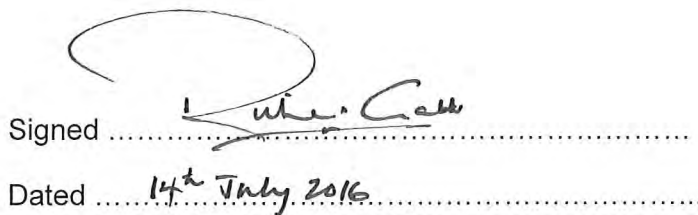 Signed ..........................................................
Dated ......14th July 2016..........................................